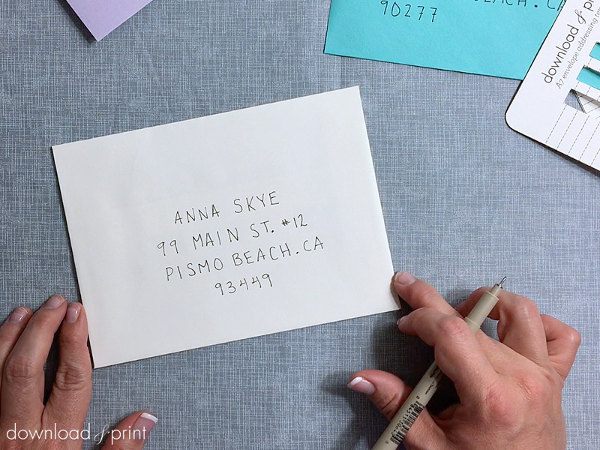 BEACH. CA
90277
download & print
A7 envelope addressing
ANNA SKYE
99 MAIN ST. #12
PISMO BEACH. CA
93449
download & print